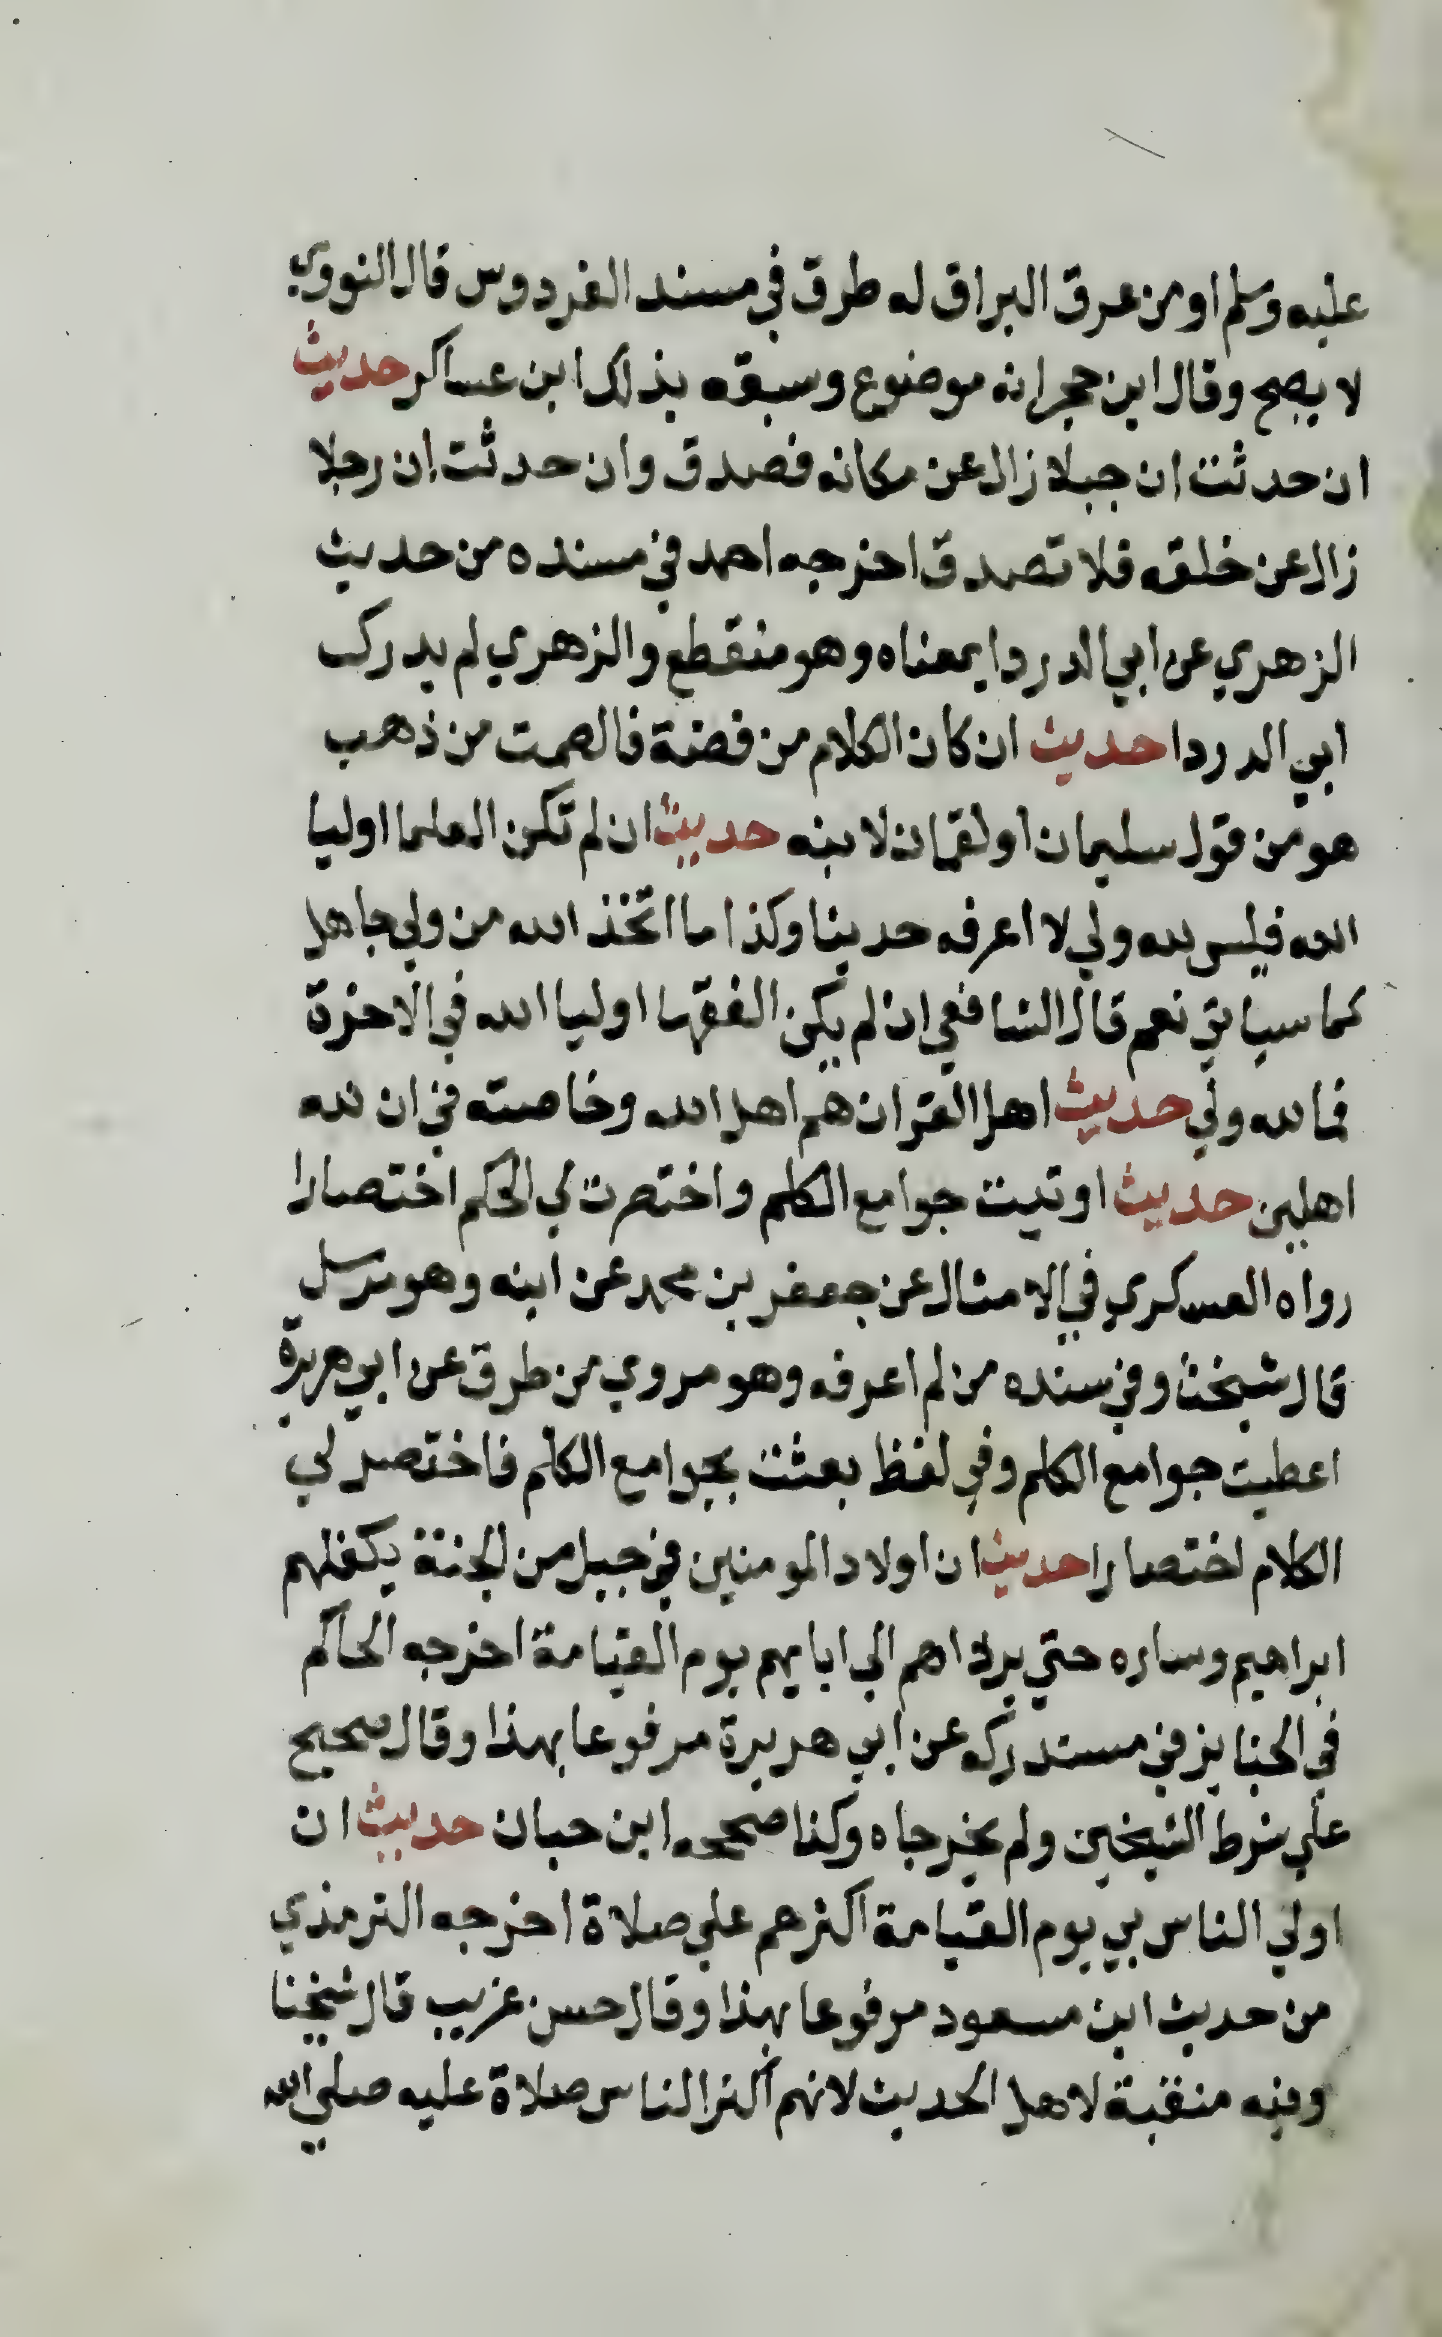 عليه وسلم او من عرق البراق له طرق في مسند الفردوس قال النووي
لا يصح وقال ابن حجر انه موضوع وسبقه بذلك ابن عساكر حديث
ان حدثت ان جبلا زال عن مكانه فصدق وان حدثت ان رجلا
زال عن خلقه فلا تصدق اخرجه احمد في مسنده من حديث
الزهري عن ابي الدردا بمعناه وهو منقطع والزهري لم يدرك
ابي الدردا حديث ان كان الكلام من فضة فالصمت من ذهب
هو من قول سليمان او لقمان لابنه حديث ان لم تكن العلما اوليا
الله فليس لله ولي لا اعرفه حديثا وكذا ما اتخذ الله من ولي جاهل
كما سياتي نعم قال الشافعي ان لم يكن الفقها اوليا الله في الاخرة
فما لله ولي حديث اهل القران هم اهل الله وخاصته في ان لله
اهلين حديث اوتيت جوامع الكلم واختصرت لي الحكم اختصارا
رواه العسكري في الامثال عن جعفر بن محمد عن ابيه وهو مرسل
قال شيخنا وفي سنده من لم اعرفه وهو مروي من طرق عن ابي هريرة
اعطيت جوامع الكلم وفي لفظ بعثت بجوامع الكلم فاختصر لي
الكلام اختصارا حديث ان اولاد المومنين في جبل من الجنة يكفلهم
ابراهيم وساره حتي يرداهم الي ابايهم يوم القيامة اخرجه الحاكم
في الجنايز في مستدركه عن ابي هريرة مرفوعا بهذا وقال صحيح
علي شرط الشيخين ولم يخرجاه وكذا صححه ابن حبان حديث ان
اولي الناس بي يوم القيامة اكثرهم علي صلاة اخرجه الترمذي
من حديث ابن مسعود مرفوعا بهذا وقال حسن غريب قال شيخنا
وفيه منقبة لاهل الحديث لانهم اكثر الناس صلاة عليه صلي الله